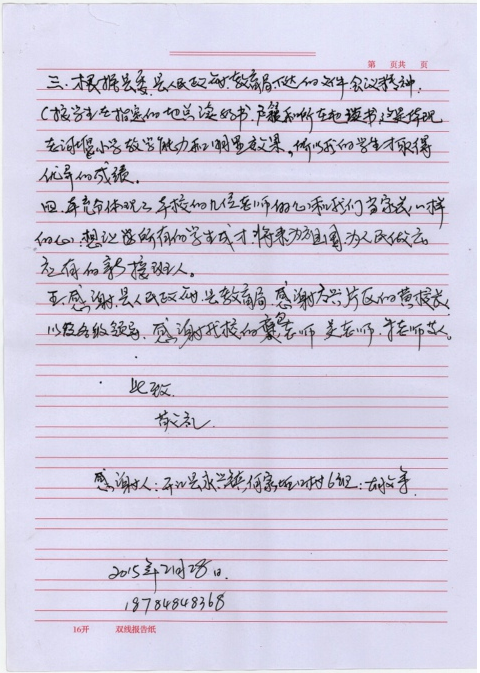 第 页共 页
三.根据县委县人民政府教育局下达的文件会议精神,
(按学生在指定的地点读好书,户籍和所在地读书,这是体现
在 小学教学能力和明显效果。所以我们学生才取得
优异的成绩。
四.在充分体现了学校的几位老师的心和我们当家长一样
的心,想让 所有的学生成才,将来为祖国为人民做
应有的新接班人。
五.感谢县人民政府县教育局,感谢 片区的黄校长
以及各级领导,感谢我校的 老师 吴老师.李老师 人。
此致.
敬礼.
感谢人:开江县永兴镇何家 村6组:胡 年
2015年 月28日.
18784848368
16开 双线报告纸